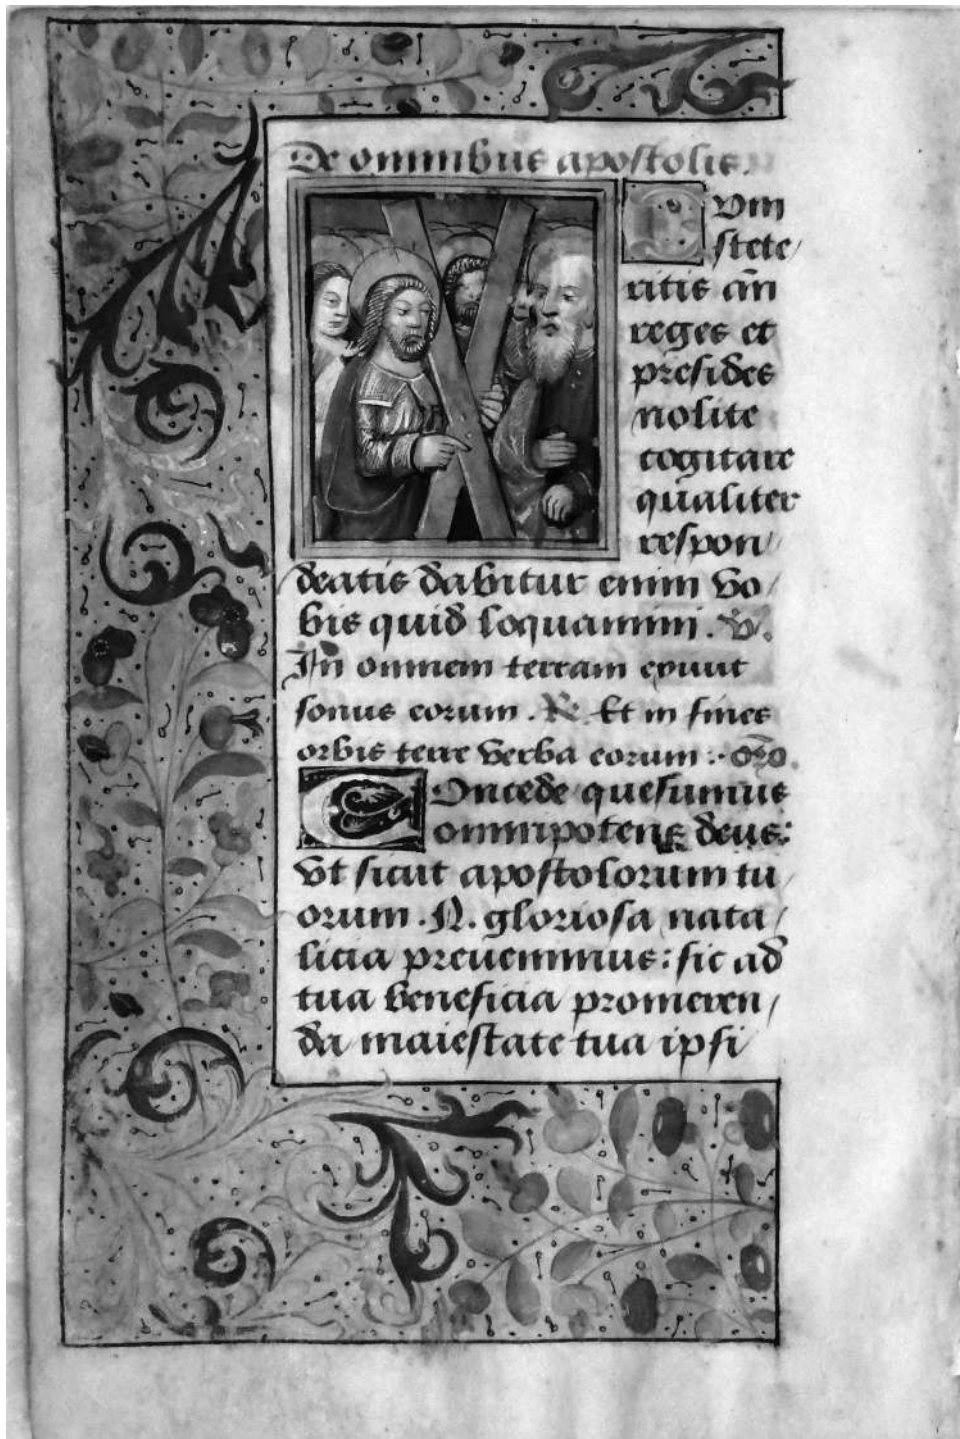 De omnibus apostolis.
Cum
stete/
ritis an̄
reges et
presides
nolite
cogitare
qualiter
respon/
deatis dabitur enim vo/
bis quid loquamini. V.
In omnem terram exiuit
sonus eorum. R. Et in fines
orbis terre verba eorum:· Oro.
Concede quesumus
omnipotens deus:
vt sicut apostolorum tu/
orum .N. gloriosa nata/
licia preuenimus: sic ad
tua beneficia promeren/
da maiestate tua ipsi